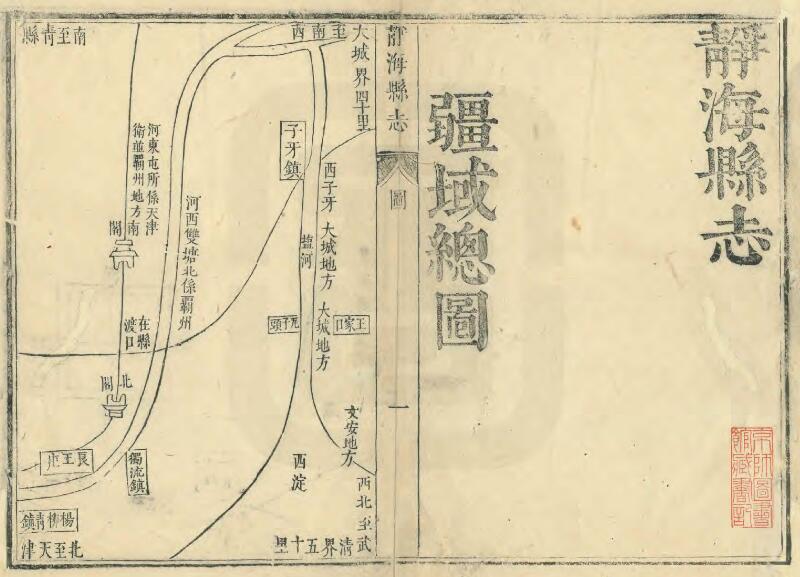 靜海縣志
疆域總圖
京師圖書
館藏書記
靜海縣志
圖
一
大城界四十里
西南至
西子牙
大城地方
大城地方
王家口
文安地方
西北至武
清界五十里
西淀
子牙鎮
鹽河
河西雙塘北係霸州
河東屯所係天津
衛並霸州地方
南閣
在縣
渡口
北閣
獨流鎮
良王庄
楊柳青鎮
北至天津
南至青縣